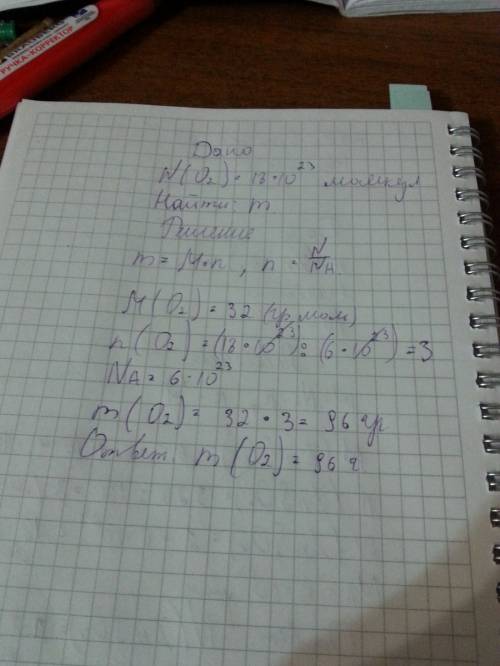 РУЧКА-КОРРЕКТОР
Дано
N(O₂) = 18·10²³ молекул
Найти: m
Решение
m = M·n, n = N/NA.
M(O₂) = 32 (гр, моль)
n(O₂) = (18·10²³) : (6·10²³) = 3
NA = 6·10²³
m(O₂) = 32 · 3 = 96 гр
Ответ: m(O₂) = 96 г